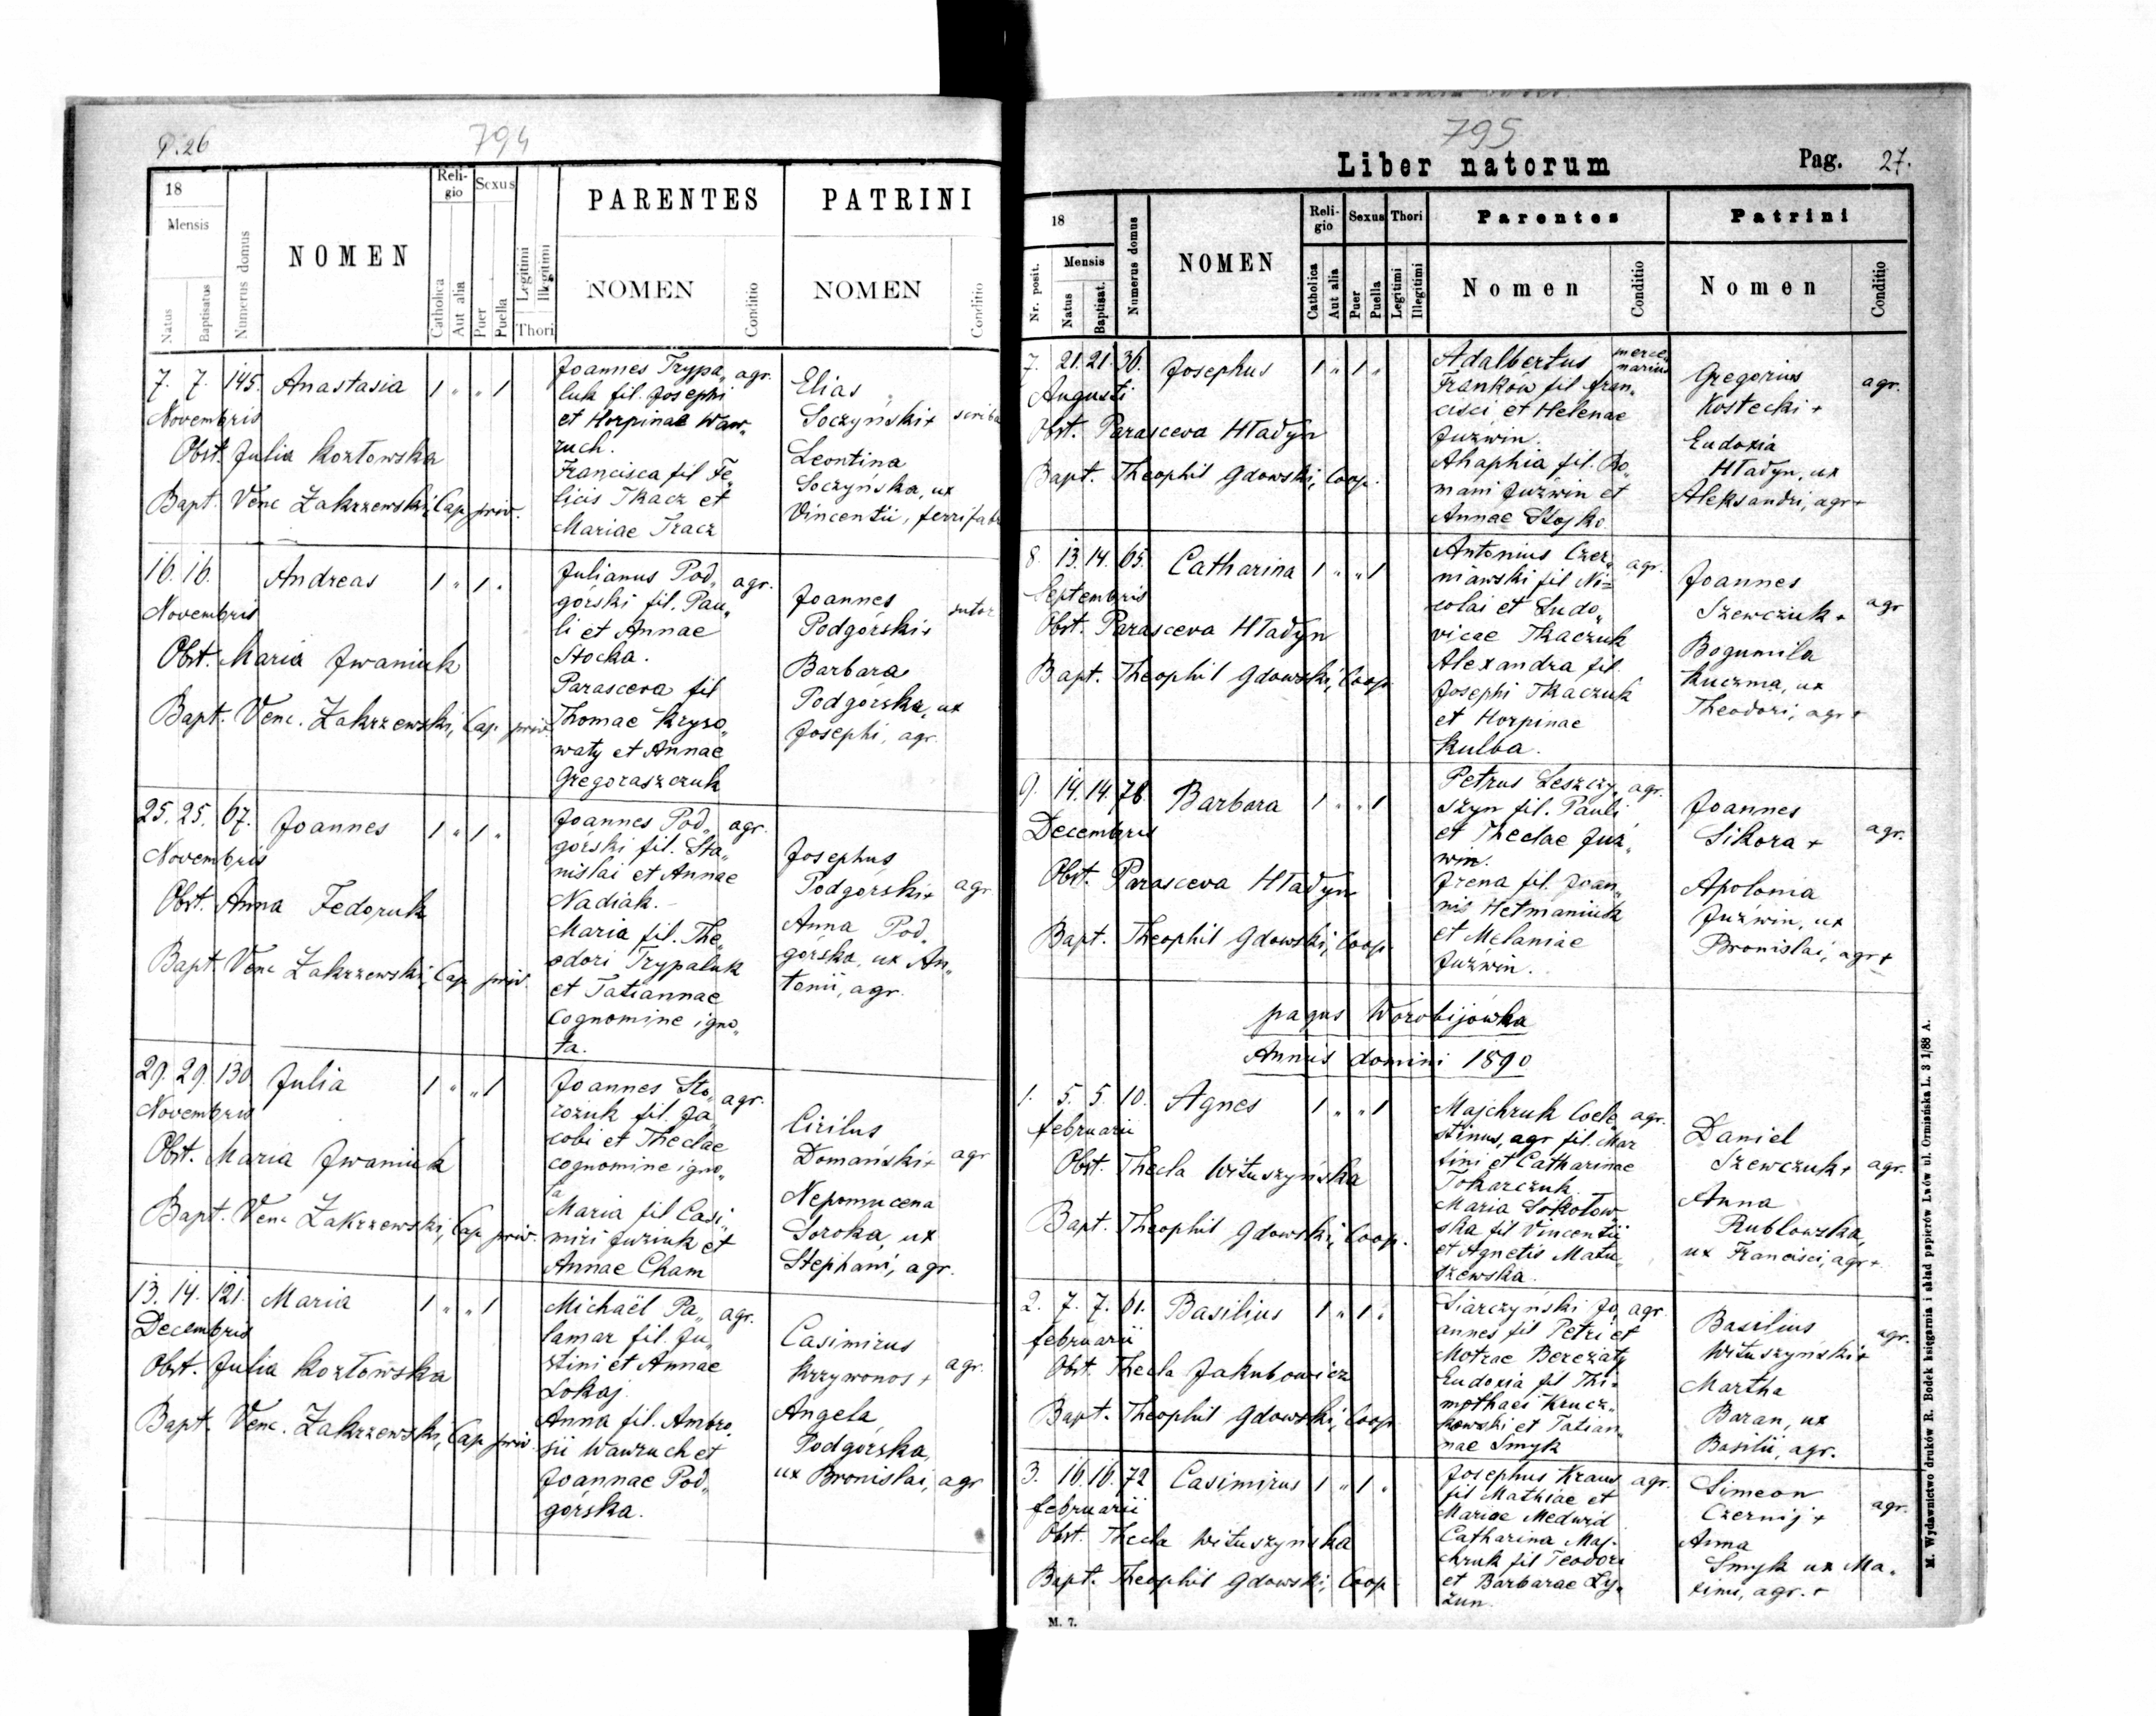 P. 26
794
18
Mensis
Natus
Baptisatus
Numerus domus
NOMEN
Reli-
gio
Catholica
Aut alia
Sexus
Puer
Puella
Legitimi
Illegitimi
Thori
PARENTES
NOMEN
Conditio
PATRINI
NOMEN
Conditio
7. 7. 145. Anastasia 1 " " 1
Novembris
Obst. Julia Kozłowska
Bapt. Venc Zakrzewski, Cap priv.
Joannes Trypa„ agr.
luk fil. Josephi
et Horpinae Waw„
ruch.
Francisca fil Fe„
licis Tkacz et
Mariae Tracz
Elias
Soczyński + scriba
Leontina
Soczyńska, ux
Vincentii, ferrifabr
16. 16. Andreas 1 " 1 "
Novembris
Obst. Maria Iwaniuk
Bapt. Venc. Zakrzewski, Cap priv
Julianus Pod„ agr.
górski fil. Pau„
li et Annae
Stocka.
Parasceva fil
Thomae Kryso„
waty et Annae
Gregoraszczuk
Joannes
Podgórski + sutor
Barbara
Podgórska, ux
Josephi, agr.
25. 25. 67. Joannes 1 " 1 "
Novembris
Obst. Anna Fedoruk
Bapt. Venc Zakrzewski, Cap priv.
Joannes Pod„ agr.
górski fil. Sta„
nislai et Annae
Nadiak.
Maria fil. The„
odori Trypaluk
et Tatiannae
Cognomine igno„
ta.
Josephus
Podgórski + agr
Anna Pod„
górska, ux An„
tonii, agr.
29. 29. 130 Julia 1 " " 1
Novembris
Obst. Maria Iwaniuk
Bapt. Venc Zakrzewski, Cap priv.
Joannes Sto„ agr.
rożuk fil. Ja„
cobi et Theclae
cognomine igno„
ta
Maria fil Casi„
miri Juziuk et
Annae Cham
Cirilus
Domański + agr
Nepomucena
Soroka, ux
Stephani, agr.
13. 14. 121. Maria 1 " " 1
Decembris
Obst. Julia Kozłowska
Bapt. Venc. Zakrzewski, Cap priv.
Michaël Pa„ agr.
lamar fil. Ju„
stini et Annae
Lokaj.
Anna fil. Ambro„
sii Wawruch et
Joannae Pod„
górska.
Casimirus
Krzywonos + agr.
Angela
Podgórska,
ux Bronislai, agr
795
Liber natorum Pag. 27.
18
Nr. posit.
Mensis
Natus
Baptisat.
Numerus domus
NOMEN
Reli-
gio
Catholica
Aut alia
Sexus
Puer
Puella
Thori
Legitimi
Illegitimi
Parentes
Nomen
Conditio
Patrini
Nomen
Conditio
7. 21. 21. 36. Josephus 1 " 1 "
Augusti
Obst. Parasceva Hładyn
Bapt. Theophil Gdowski, Coop.
Adalbertus merce„
narius
Franków fil Fran„
cisci et Helenae
Juźwin.
Ahaphia fil. Ro„
mani Juźwin et
Annae Stojko
Gregorius agr.
Kostecki +
Eudoxia
Hładyn, ux
Aleksandri, agr +
8. 13. 14. 65. Catharina 1 " " 1
Septembris
Obst. Parasceva Hładyn
Bapt. Theophil Gdowski, Coop
Antonius Czer„ agr.
niawski fil Ni=
colai et Ludo„
vicae Tkaczuk
Alexandra fil.
Josephi Tkaczuk
et Horpinae
Kulba.
Joannes
Szewczuk + agr
Bogumila
Kuczma, ux
Theodori, agr +
9. 14. 14. 78. Barbara 1 " " 1
Decembris
Obst. Parasceva Hładyn
Bapt. Theophil Gdowski, Coop
Petrus Leszczy„ agr.
szyn fil. Pauli
et Theclae Juź„
win.
Irena fil. Joan„
nis Hetmaniuk
et Melaniae
Juźwin.
Joannes
Sikora + agr.
Apolonia
Juźwin, ux
Bronislai, agr +
pagus Worobijówka
Annis domini 1890
1. 5. 5. 10. Agnes 1 " " 1
februarii
Obst. Thecla Wituszyńska
Bapt. Theophil Gdowski, Coop.
Majchruk Coele„ agr.
stinus, agr fil. Mar
tini et Catharinae
Tokarczuk
Maria Sokołow
ska fil Vincentii
et Agnetis Matu„
szewska.
Daniel
Szewczuk + agr.
Anna
Rublowska,
ux Francisci, agr +
2. 7. 7. 61. Basilius 1 " 1 "
februarii
Obst. Thecla Jakubowicz
Bapt. Theophil Gdowski, Coop
Siarczyński Jo„ agr.
annes fil Petri et
Motrae Bereżaty
Eudoxia fil Thi=
mothaei Krucz„
kowski et Tatian„
nae Smyk
Basilius agr.
Wituszyński +
Martha
Baran, ux
Basilii, agr.
3. 16. 16. 72 Casimirus 1 " 1 "
februarii
Obst. Thecla Wituszyńska
Bapt. Theophil Gdowski, Coop
Josephus Kraus agr.
fil Mathiae et
Mariae Medwid
Catharina Maj-
chruk fil Teodori
et Barbarae Ły„
żun.
Simeon
Czernij + agr.
Anna
Smyk ux Ma„
ximi, agr. +
M. 7.
M. Wydawnictwo druków R. Bodek księgarnia i skład papierów Lwów ul. Ormiańska L. 3 1/88 A.